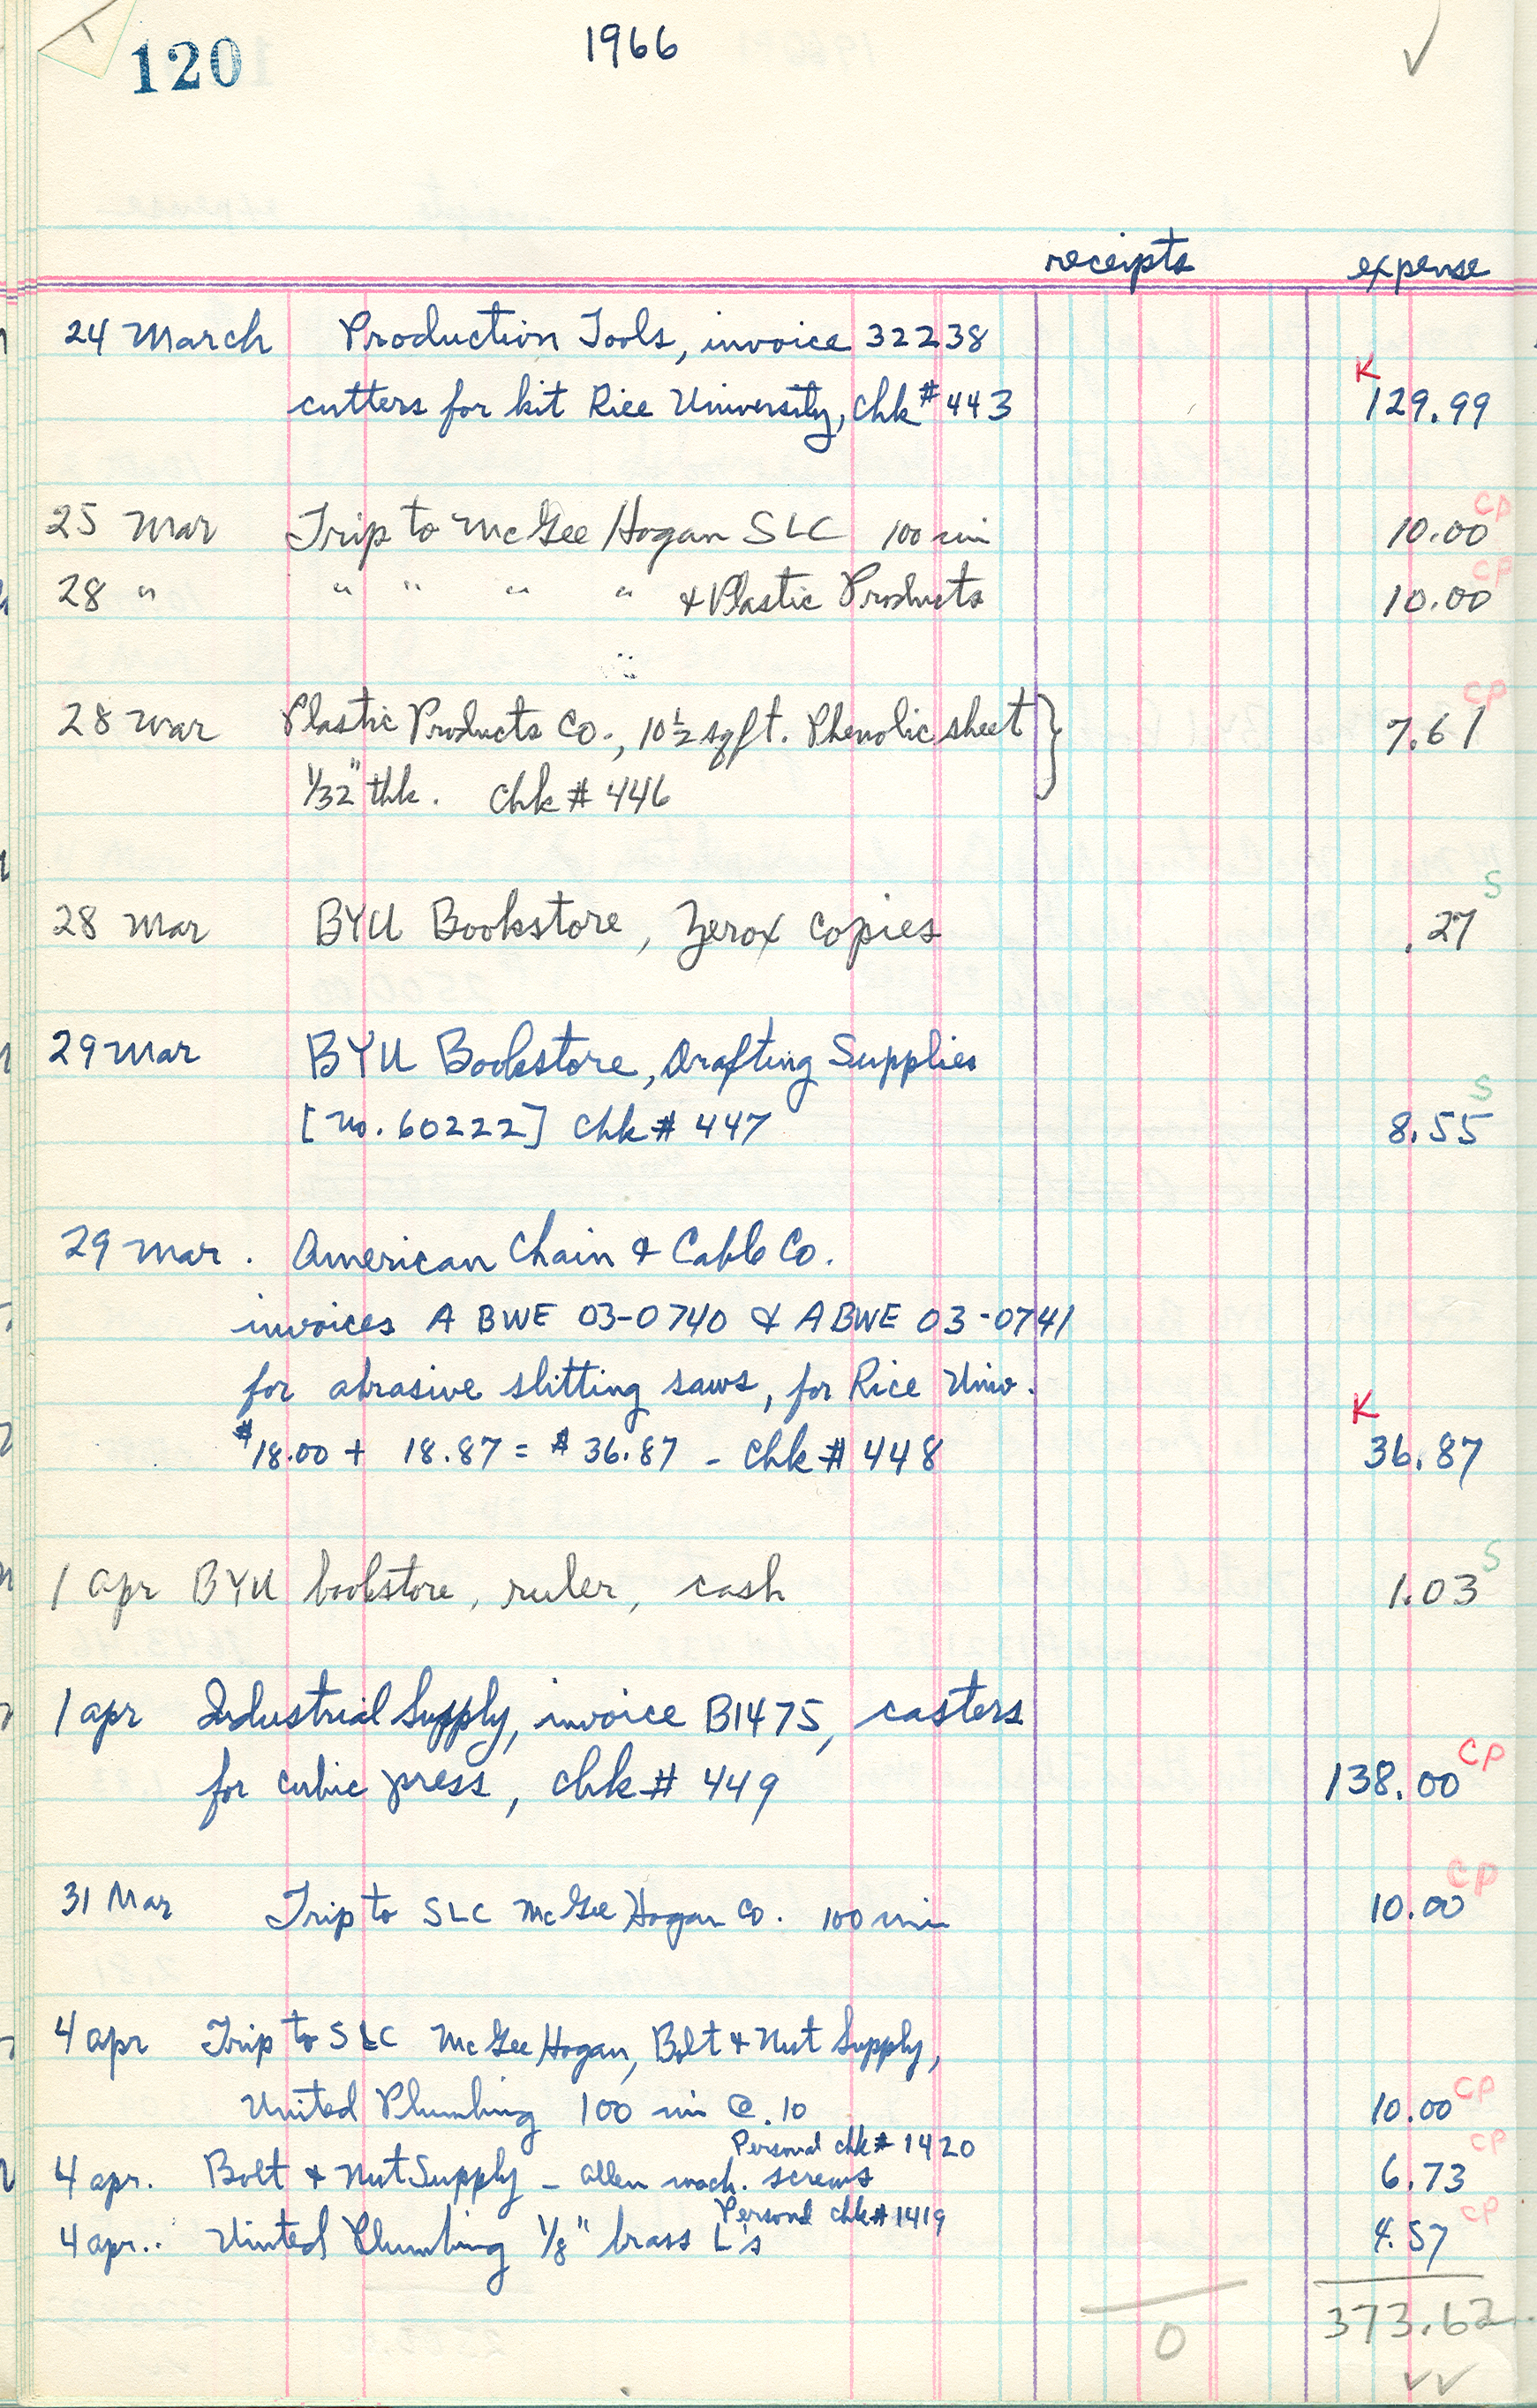 120
1966
✓
receipts expense
24 March Production Tools, invoice 32238
K
cutters for kit Rice University, chk # 443 129.99
25 Mar Trip to McGee Hogan SLC 100 mi 10.00 CP
28 " " " " " & Plastic Products 10.00 CP
28 Mar Plastic Products Co., 10 1/2 sqft. Phenolic sheet } 7.61 CP
1/32" thk. chk # 446
28 Mar BYU Bookstore, Zerox copies .27 S
29 Mar BYU Bookstore, Drafting Supplies
[No. 60222] chk # 447 8.55 S
29 Mar. American Chain & Cable Co.
invoices A BWE 03-0740 & A BWE 03-0741
for abrasive slitting saws, for Rice Univ.
K
$18.00 + 18.87 = $36.87 - chk # 448 36.87
1 apr BYU bookstore, ruler, cash 1.03 S
1 apr Industrial Supply, invoice B1475, casters
for cubic press, chk # 449 138.00 CP
31 Mar Trip to SLC McGee Hogan Co. 100 mi 10.00 CP
4 apr Trip to SLC McGee Hogan, Bolt & Nut Supply,
United Plumbing 100 mi @ .10 10.00 CP
Personal chk # 1420
4 apr. Bolt & Nut Supply - allen mach. screws 6.73 CP
Personal chk # 1419
4 apr.. United Plumbing 1/8" brass L's 4.57 CP
0 373.62
✓✓